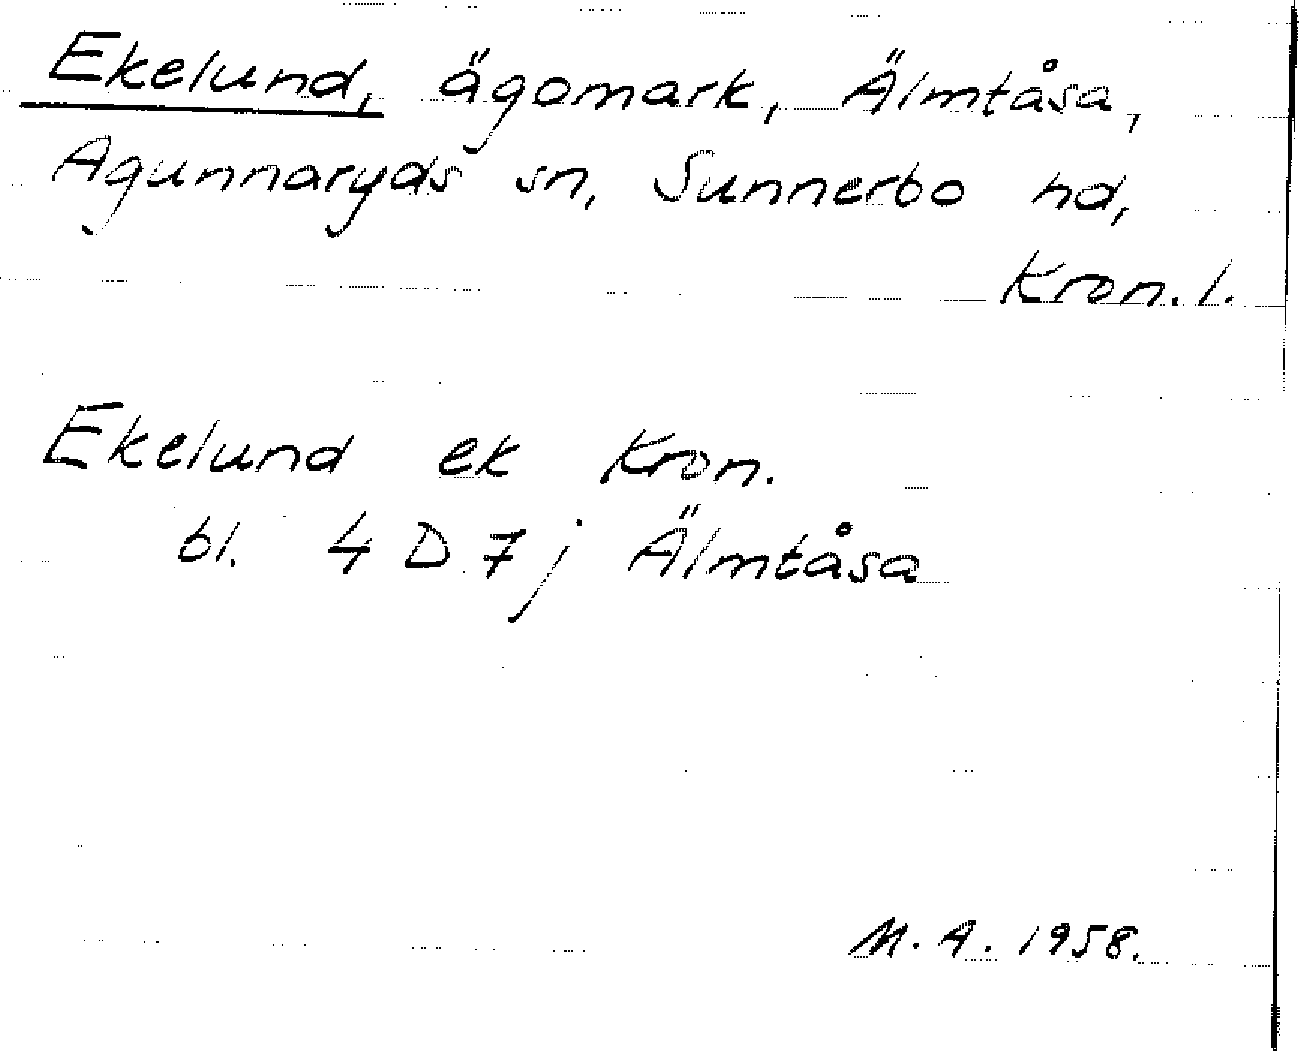 Ekelund, ägomark, Älmtåsa,
Agunnaryds sn, Sunnerbo hd,
Kron. l.
Ekelund ek Kron.
bl. 4 D 7 j Älmtåsa
M. A. 1958.